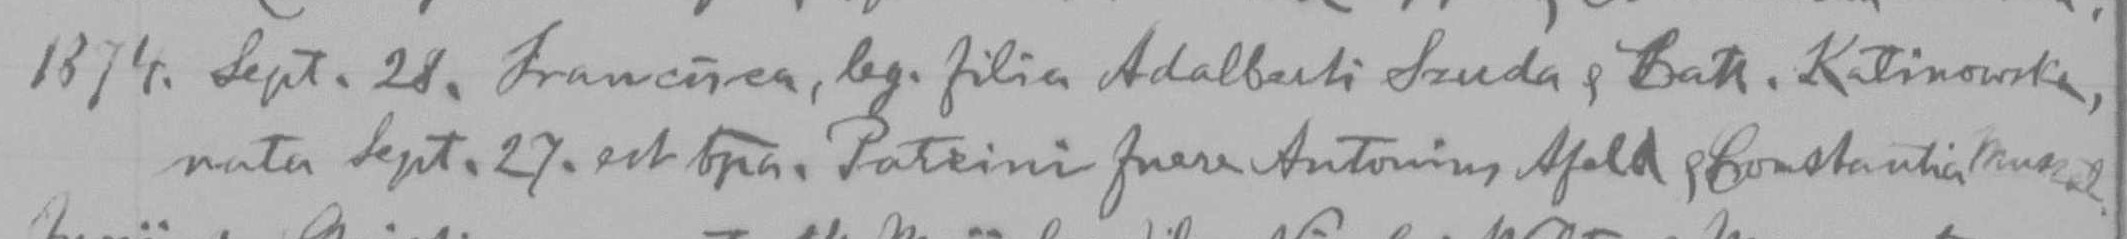 1874. Sept. 28. Francisca, leg. filia Adalberti Szuda & Cath. Katinowska,
nata Sept. 27. est bpa. Patrini fuere Antonius Afeld & Constantia